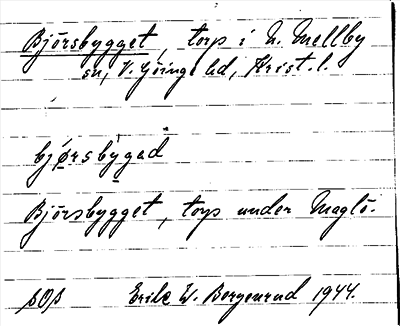 Björsbygget, torp i N. Mellby
sn, V. Göinge hd, Krist. l.
bjørsbygəd
Björsbygget, torp under Maglö.
SOS Erik W. Bergenrud 1944.